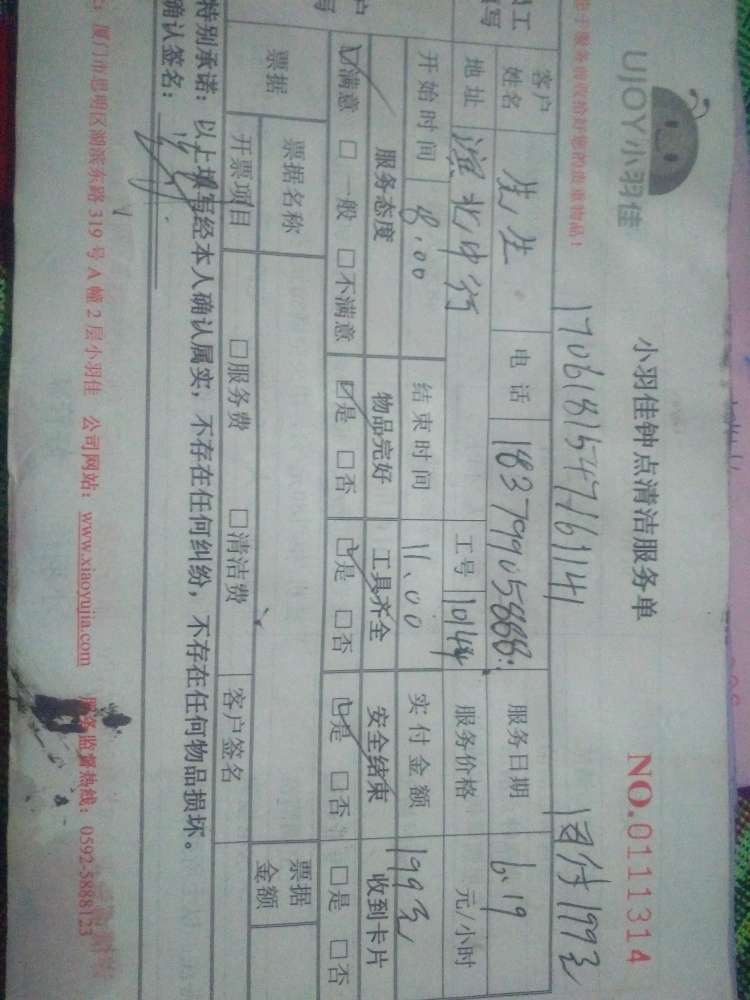 UJOY小羽佳
小羽佳钟点清洁服务单
NO.0111314
于服务前收拾好您的贵重物品！
1706181547161141
已付199元
客户姓名
先生
电话
18379905888
服务日期
6.19
地址
滨北中行
工号
1044
服务价格
元/小时
开始时间
8.00
结束时间
11.00
实付金额
199元
服务态度
物品完好
工具齐全
安全结束
收到卡片
☑满意 □一般 □不满意
☑是 □否
☑是 □否
☑是 □否
□是 □否
票据
票据名称
票据金额
开票项目
□服务费 □清洁费
客户签名
特别承诺：以上填写经本人确认属实，不存在任何纠纷，不存在任何物品损坏。
确认签名：
厦门市思明区湖滨东路319号A幢2层小羽佳 公司网站：www.xiaoyujia.com 服务监督热线：0592-5888123